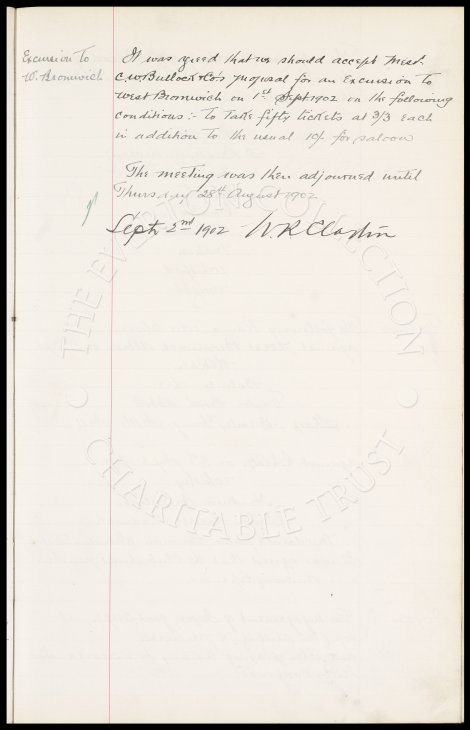 Excursion to
W. Bromwich
It was agreed that we should accept Messrs
C. W. Bullock & Co's proposal for an Excursion to
West Bromwich on 1st Sept 1902 on the following
conditions :- to Take fifty tickets at 3/3 each
in addition to the usual 10/- for saloon
The meeting was then adjourned until
Thursday 28th August 1902
Sept 2nd 1902 W. R. Clayton
THE EVERTON COLLECTION
CHARITABLE TRUST